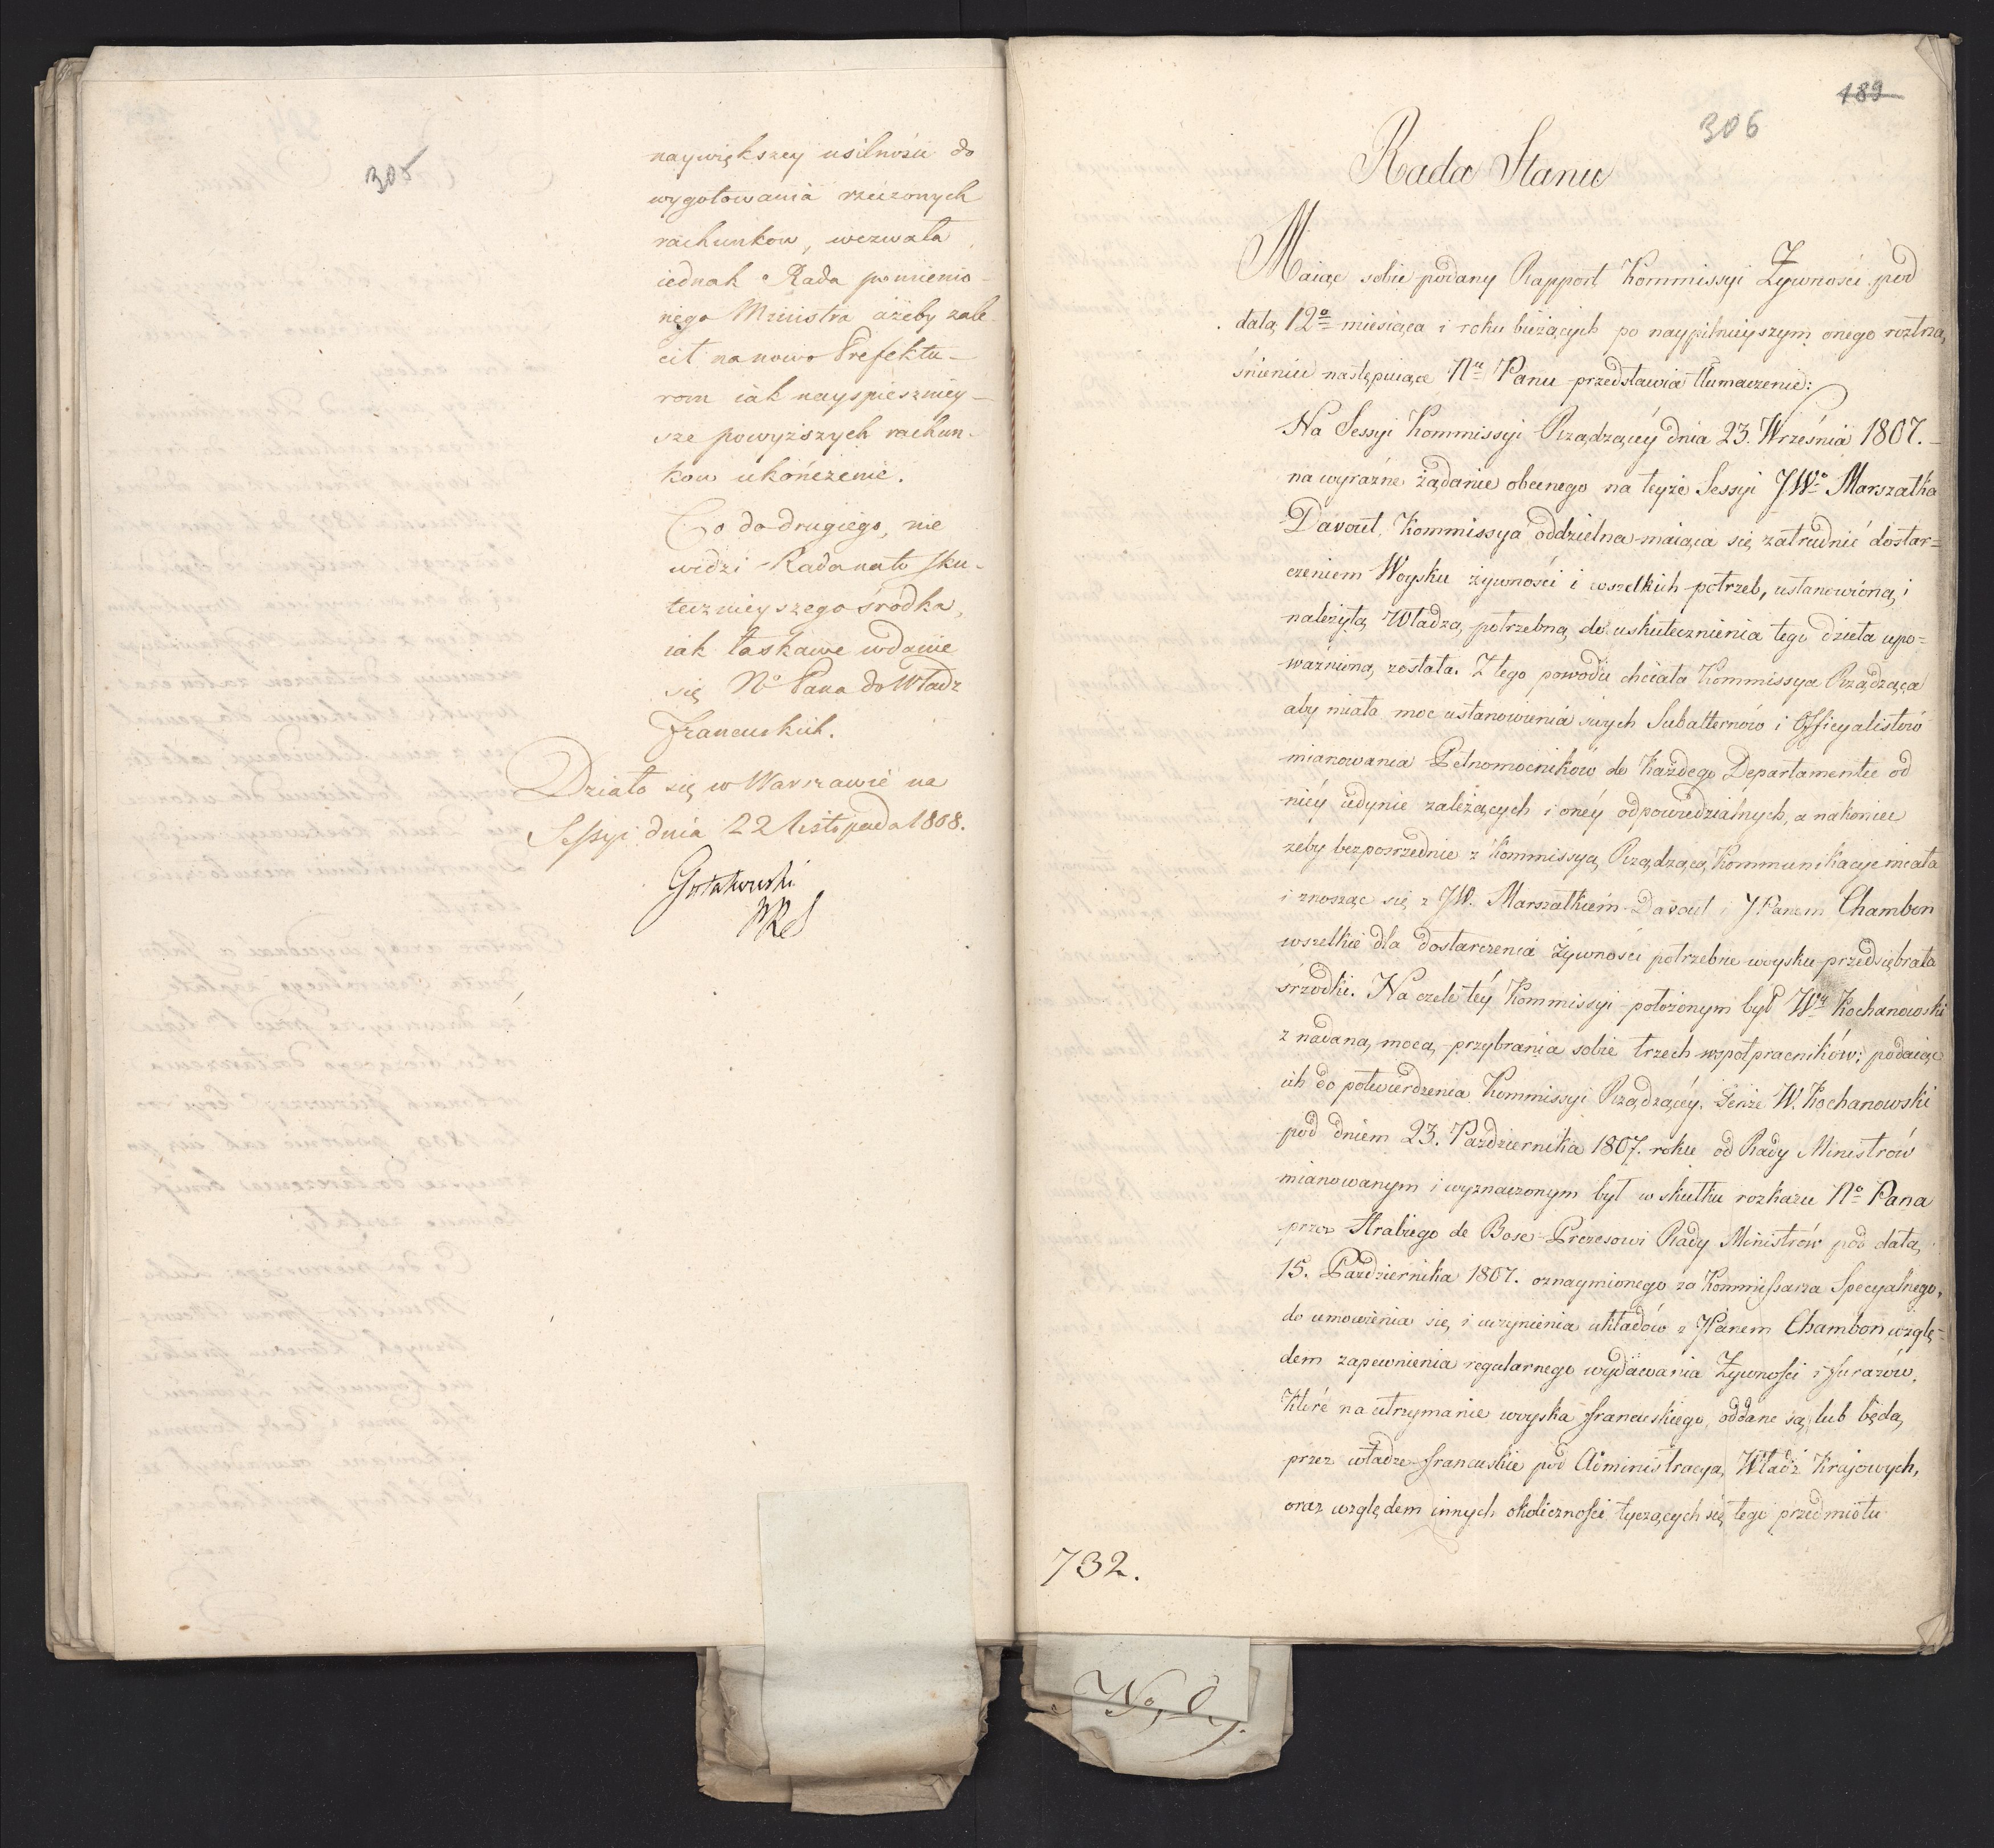 305
naywiększey usilności do
wygotowania rzeczonych
rachunkow, wezwała
iednak Rada pomienio-
nego Ministra ażeby zale-
cił na nowo Prefektu-
rom iak nayspieszniey-
sze powyższych rachun-
kow ukończenie.
Co do drugiego, nie
widzi Rada na to sku-
tecznieyszego środka,
iak łaskawe wdanie
się No Pana do Władz
Francuskich.
Działo się w Warszawie na
Sessyi dnia 22 Listopada 1808.
Gutakowski
189
306
Rada Stanu
Maiąc sobie podany Rapport Kommissyi Żywności pod
datą 12o miesiąca i roku bieżących po naypilnieyszym onego roztrzą
śnieniu następuiące Nu Panu przedstawia tłumaczenie:
Na Sessyi Kommissyi Rządzącéy dnia 23. Września 1807.
na wyraźne żądanie obecnego na teyże Sessyi JWo Marszałka
Davout, Kommissya oddzielna maiąca się zatrudnić dostar=
czeniem Woysku żywności i wszelkich potrzeb, ustanowioną i
należytą Władzą, potrzebną do uskutecznienia tego dzieła upo=
ważnioną została. Z tego powodu chciała Kommissya Rządząca
aby miała moc ustanowienia swych Subalternów i Officyalistów
mianowania Pełnomocników do każdego Departamentu od
niéy iedynie zależących i onéy odpowiedzialnych, a nakoniec
żeby bezpośrzednie z Kommissyą Rządzącą Kommunikacye miała
i znosząc się z JW. Marszałkiem Davout i JPanem Chambon
wszelkie dla dostarczenia żywności potrzebne woysku przedsiębrała
śrzodki. Na czele téy Kommissyi położonym był Wny Kochanowski
z nadaną mocą przybrania sobie trzech wspołpracników; podaiąc
ich do potwierdzenia Kommissyi Rządzącéy. Tenże W. Kochanowski
pod dniem 23. Października 1807. roku od Rady Ministrów
mianowanym i wyznaczonym był w skutku rozkazu No Pana
przez Hrabiego de Bose Prezesowi Rady Ministrów pod datą
15. Października 1807. oznaymionego za Kommissarza Specyalnego,
do umowienia się i uczynienia układów z JPanem Chambon wzglę-
dem zapewnienia regularnego wydawania Żywności i furażów,
które na utrzymanie woyska francuskiego, oddane są lub będą
przez władze francuskie pod Administracyą Władz Krajowych,
oraz względem innych okoliczności tyczących się tego przedmiotu
732.